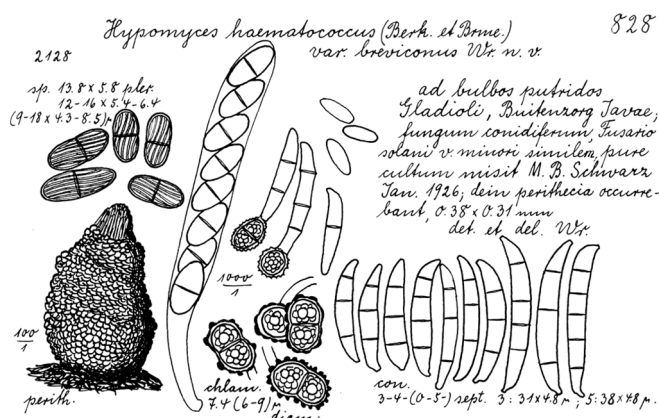 Hypomyces haematococcus (Berk. et Brme.)
828
2128
var. breviconus Wr. n. v.
sp. 13.8 × 5.8 pler.
12-16 × 5.4-6.4
(9-18 × 4.3-8.5) μ
ad bulbos putridos
Gladioli, Buitenzorg Javae;
fungum conidiferum, Fusario
solani v. minori similem, pure
cultum misit M. B. Schwarz
Jan. 1926; dein perithecia occurre-
bant, 0.38 × 0.31 mm
det. et del. Wr.
1000/1
100/1
perith.
chlam.
7.4 (6-9) μ
diam.
con.
3-4-(0-5-) sept. 3: 31×4.8 μ; 5: 38×4.8 μ.